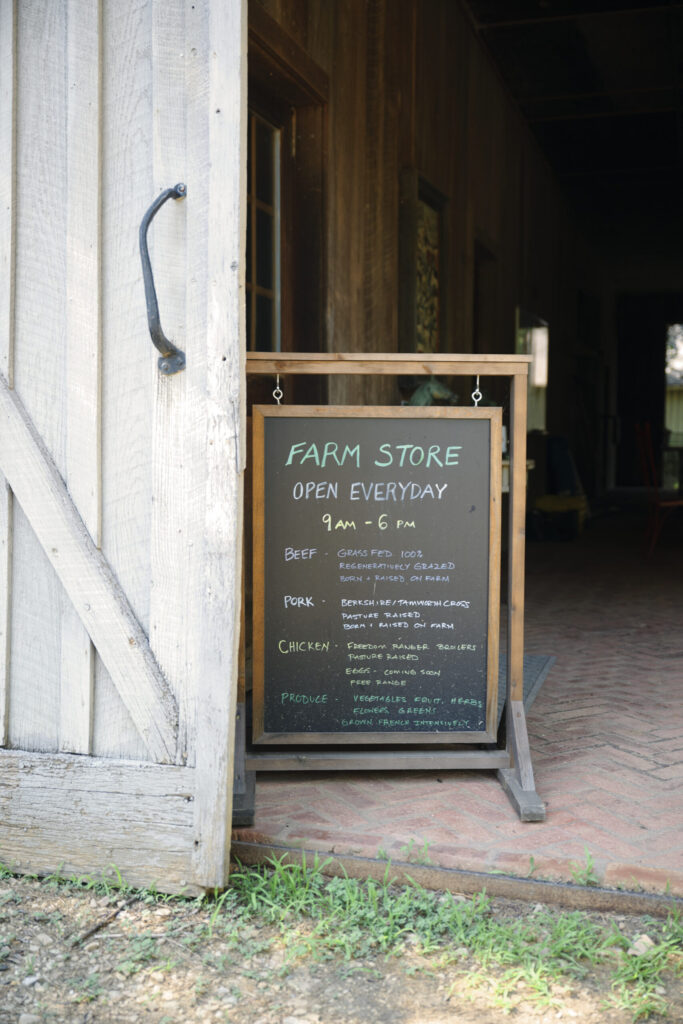 FARM STORE
OPEN EVERYDAY
9AM - 6 PM
BEEF - GRASS FED 100%
REGENERATIVELY GRAZED
BORN + RAISED ON FARM
PORK - BERKSHIRE/TAMWORTH CROSS
PASTURE RAISED
BORN + RAISED ON FARM
CHICKEN - FREEDOM RANGER BROILERS
PASTURE RAISED
EGGS - COMING SOON
FREE RANGE
PRODUCE - VEGETABLES FRUIT, HERBS
FLOWERS GREENS
GROWN FRENCH INTENSIVELY